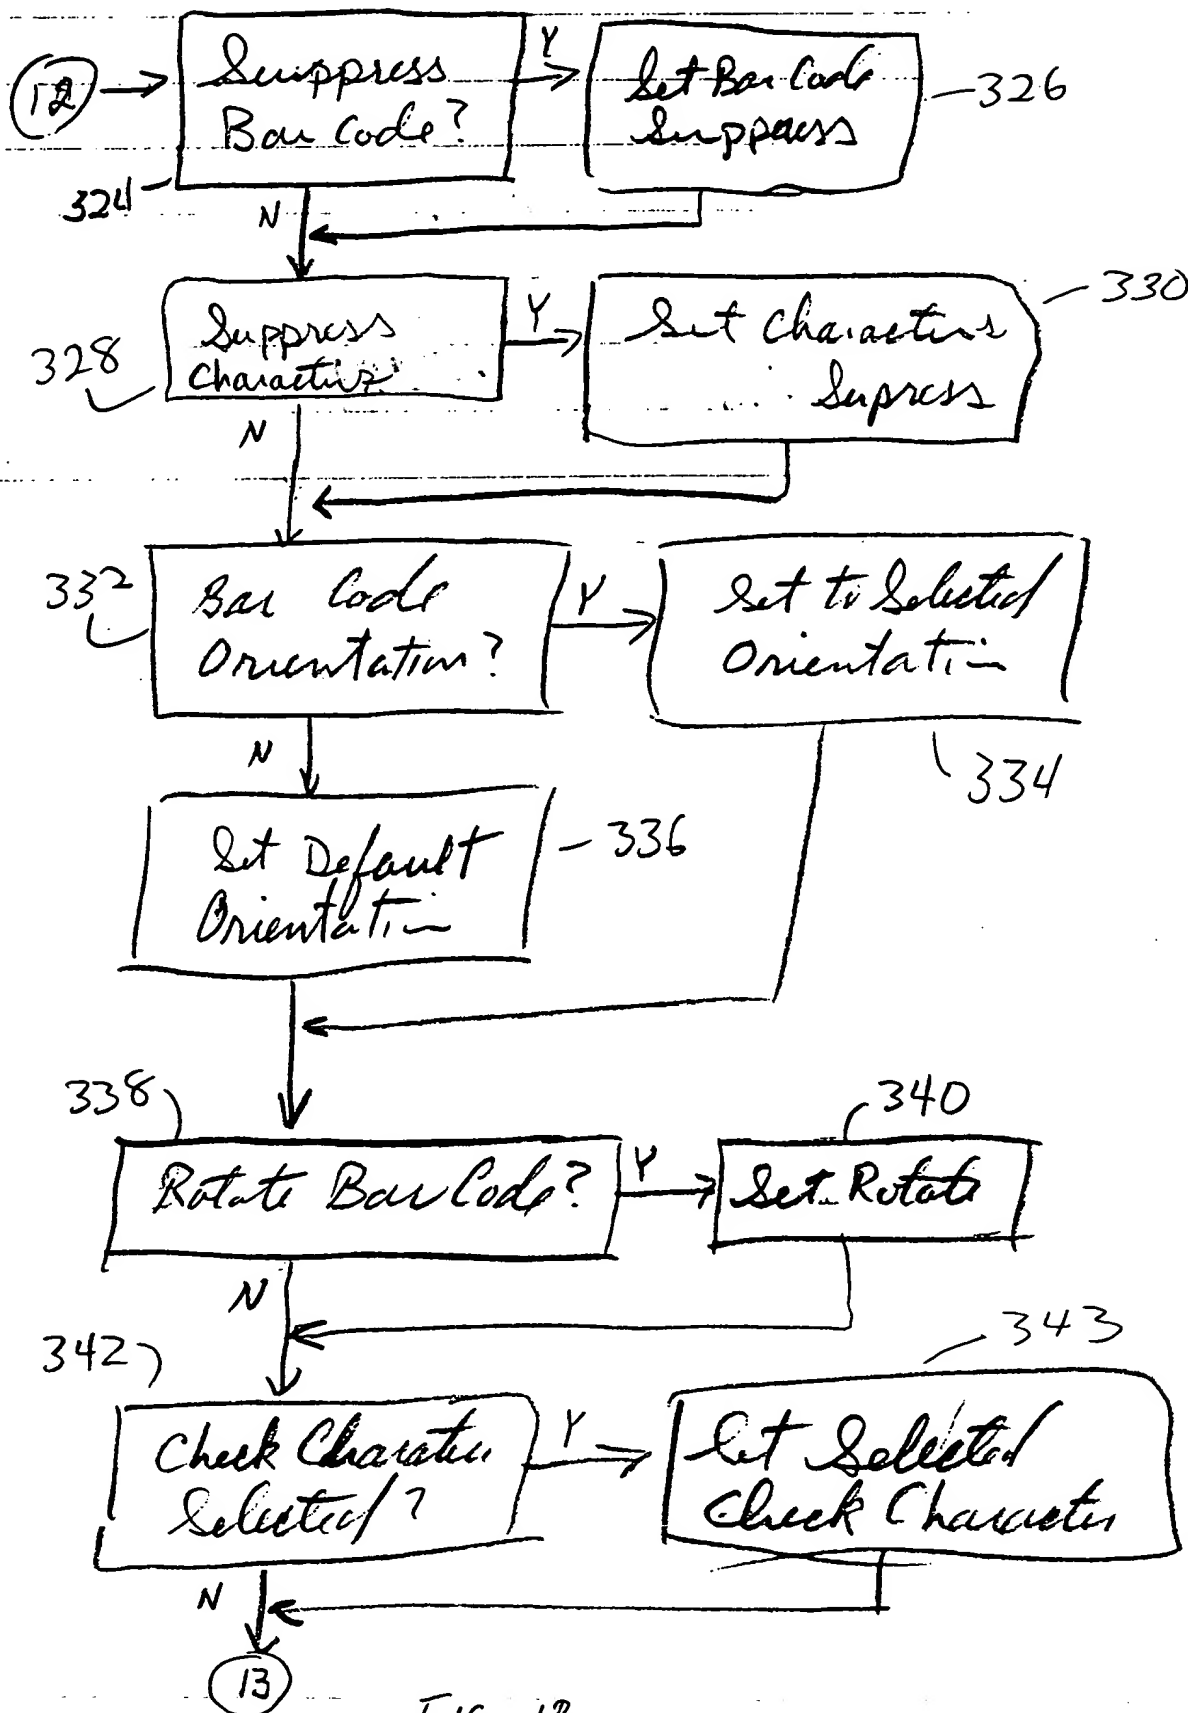 12
Suppress
Bar Code?
Y
Set Bar Code
Suppress
326
324
N
Suppress
Characters
328
Y
Set Characters
Supress
330
N
332
Bar Code
Orientation?
Y
Set to Selected
Orientation
334
N
Set Default
Orientation
336
338
Rotate Bar Code?
Y
340
Set Rotate
N
342
Check Charater
Selected?
Y
343
Set Selected
Check Character
N
13